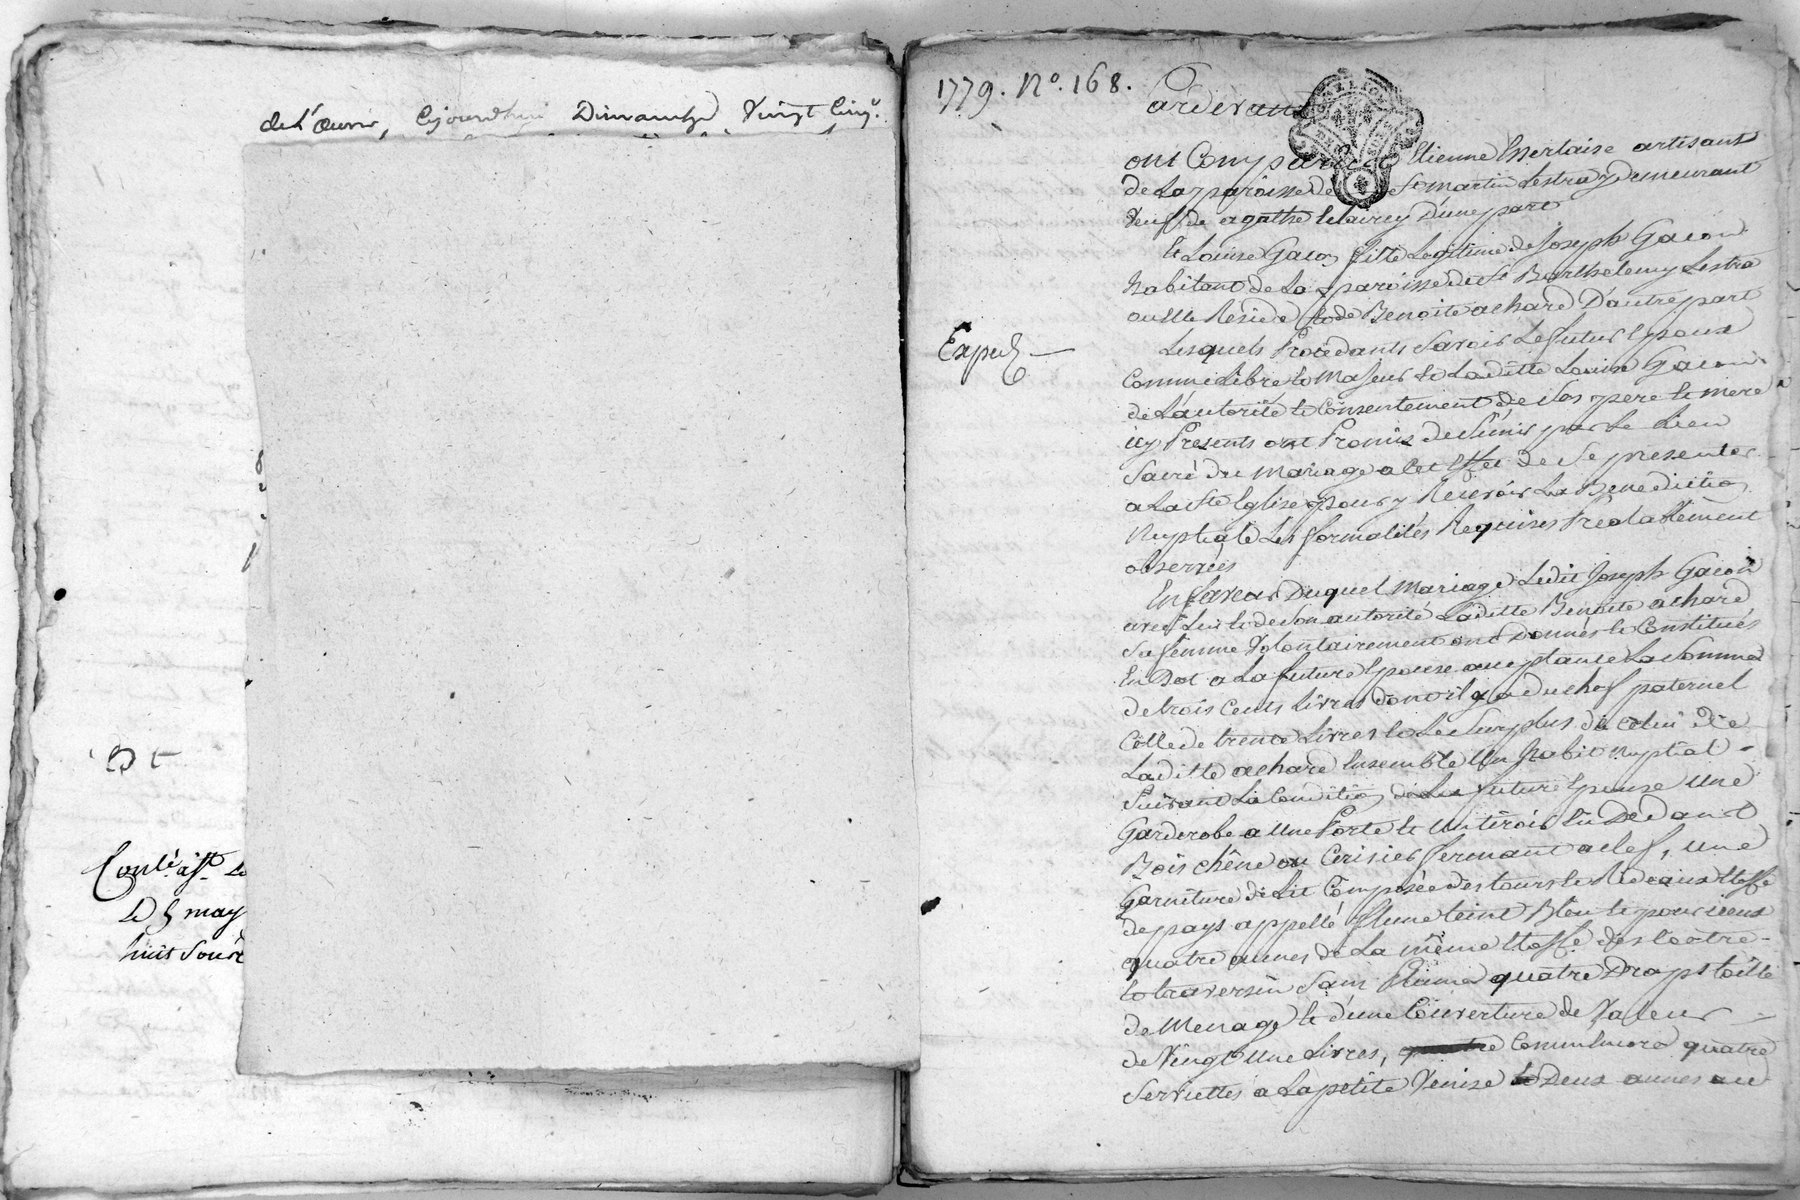 de L'œuvre, Cejourdhui Dimanche Vingt Cinq
Le 5 may
huit sous
1779. N°. 168.
Pardevant
ont Comparu Etienne artisant
de La paroisse de St martin Lestra y Demeurant
Veuf de agathe D'une part
Et Louise Gacon fille Legitime de Joseph Gacon
habitant de La paroisse de St Barthelemy Lestra
ou elle Réside & de Benoite achard D'autre part
Exped
Lesquels Procédants Savoir Le futur Epoux
Comme Libre & Majeur & Laditte Louise Gacon
de L'autorité & Consentement de Ses pere & mere
icy Presents ont Promis de S'unir par Le Lien
Sacré du Mariage a Cet Effet de Se presenter
a La Ste Eglise pour y Recevoir La Benediction
Nuptiale Les formalités Requises Préalablement
observées
En faveur Duquel Mariage Ledit Joseph Gacon
avec Lui & de Son autorité Laditte Benoite achard
Sa femme Volontairement ont Donnés & Constitués
En Dot a La future Epouse acceptante La Somme
de trois Cents Livres dont il y a du chef paternel
Celle de trente Livres & Le Surplus de Celui de
Laditte achard Ensemble Un habit nuptial
Suivant La Condition de La future Epouse Une
Garderobe a Une Porte & Un tiroir En Dedans
Bois chêne ou Cerisier fermant a clef, Une
Garniture de Lit Composée des tours & Rideaux Etoffe
de pays appellé teint Bleu &
quatre aunes de La même Etoffe
& traversin Sans Plume quatre Draps toille
de Menage & d'une Couverture de Valeur
de Vingt Une Livres, quatre
Serviettes a La petite Venise Deux aunes